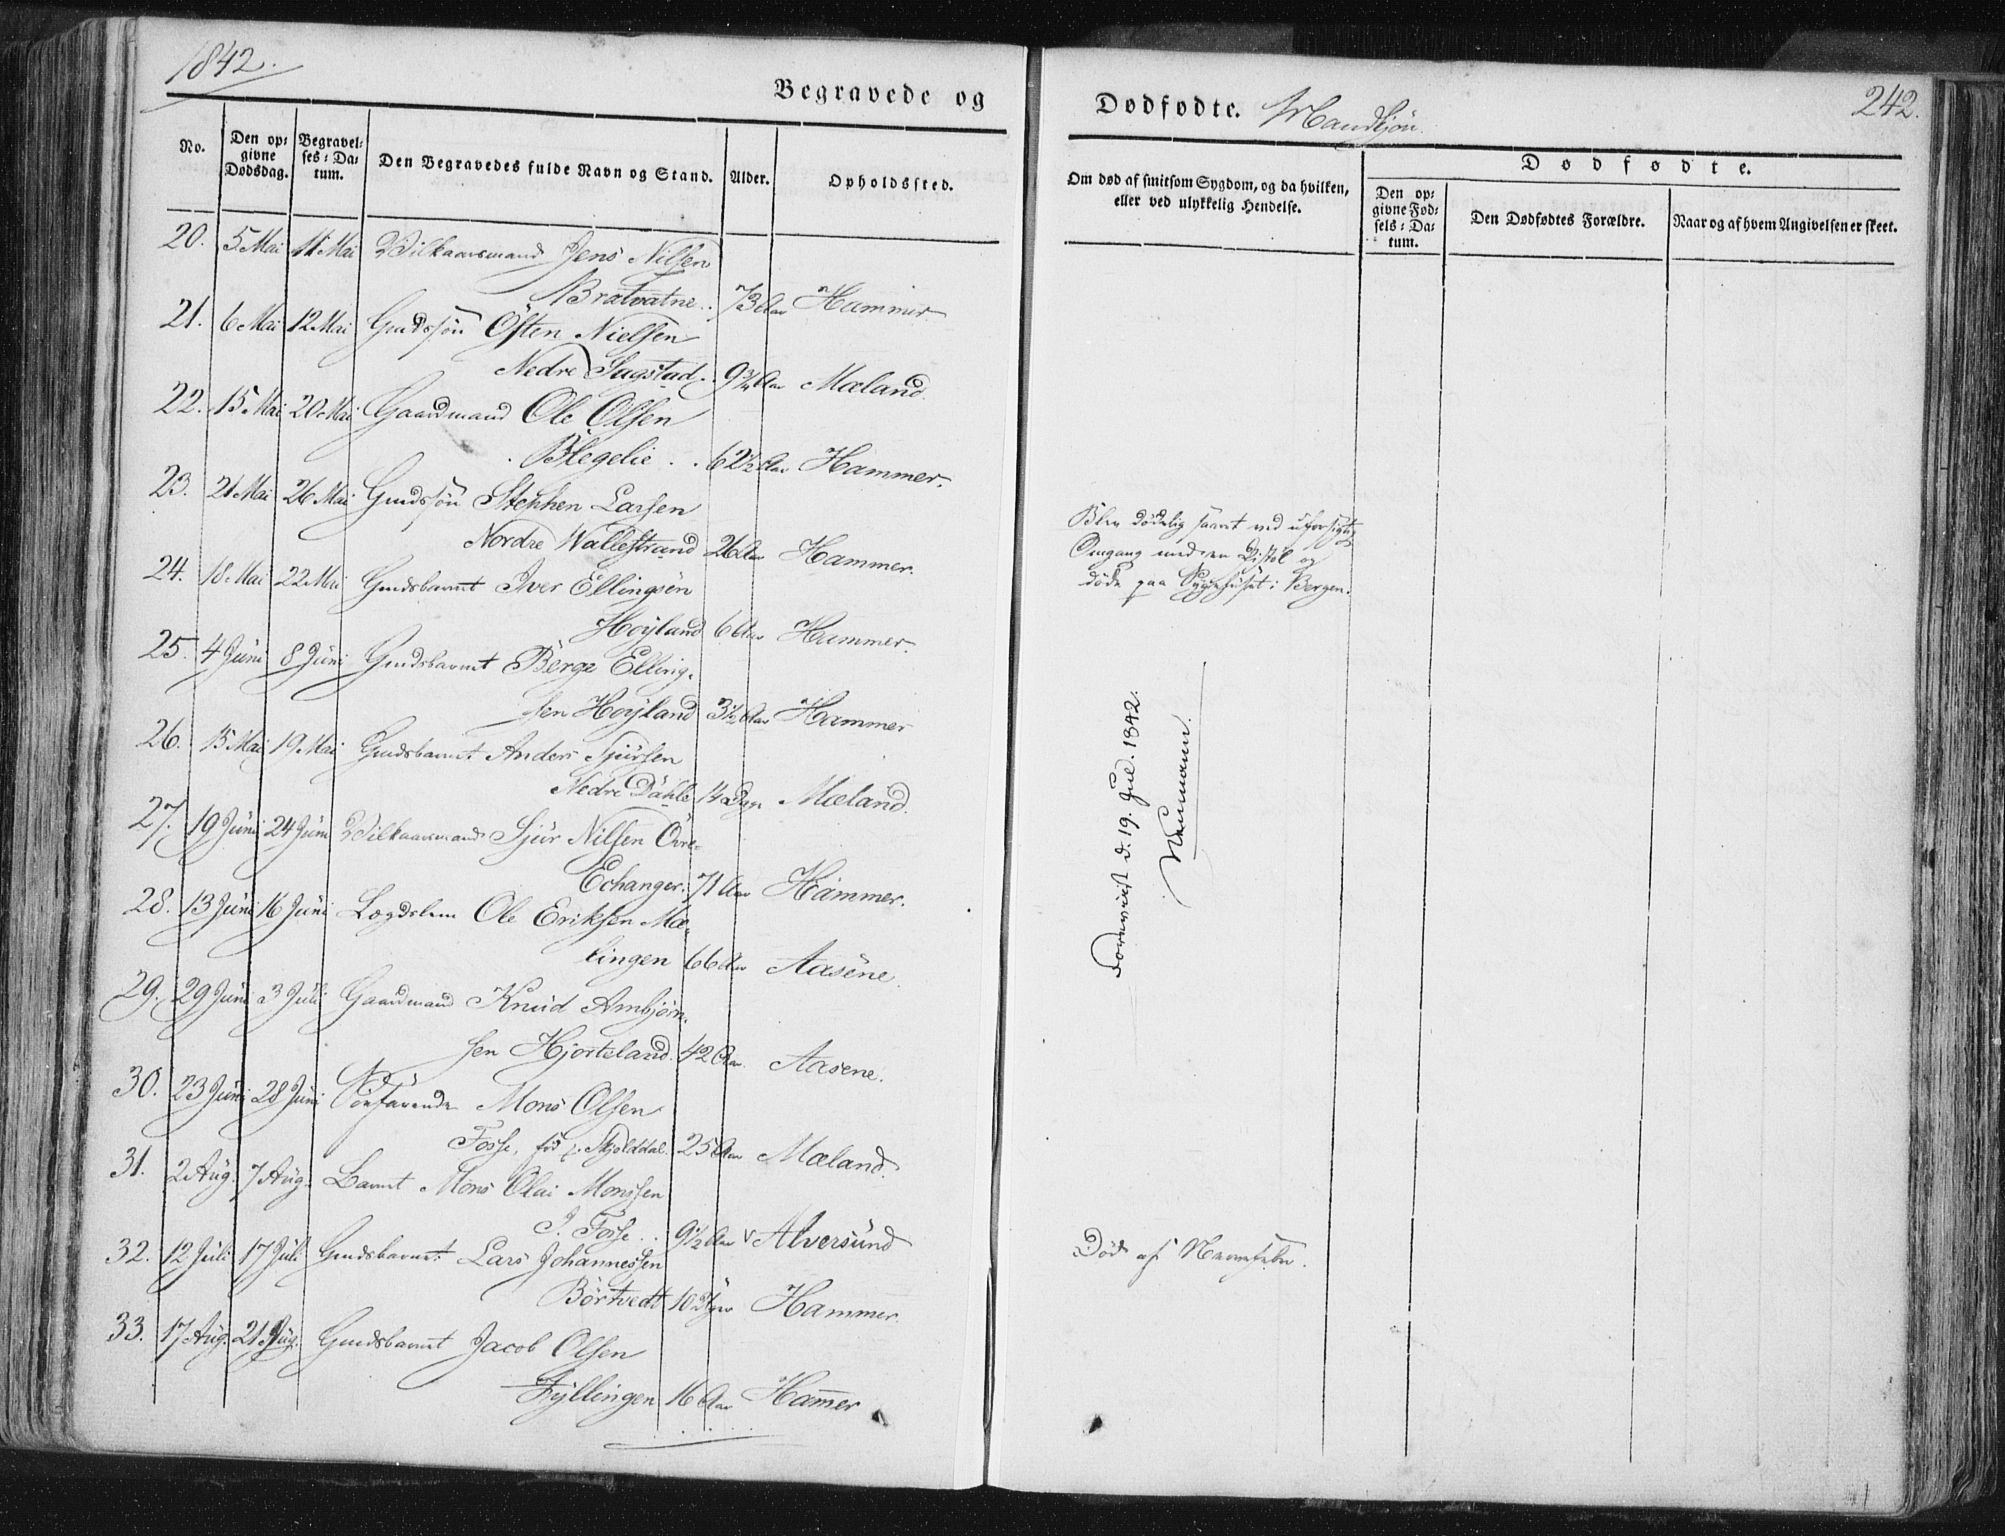 1842.
Begravede og
No.
Den op-
givne
Dødsdag.
Begravel-
ses-Da-
tum.
Den Begravedes fulde Navn og Stand.
Alder.
Opholdssted.
20. 5 Mai 11 Mai Vilkaarsmand Jens Nilsen
Bratvatne . 73 Aar Hammer
21. 6 Mai 12 Mai Gmdssøn Østen Nielsen
Nedre Sagstad . 9¾ Aar Mæland.
22. 15 Mai 20 Mai Gaardmand Ole Olsen
Blegelie . . 62½ Aar Hammer.
23. 21 Mai 26 Mai Gmdssøn Stephen Larsen
Nordre Wallestrand 26 Aar Hammer.
24. 18 Mai 22 Mai Gmdsbarnet Iver Ellingsen
Hoyland 6 Aar Hammer.
25. 4 Juni 8 Juni Gmdsbarnet Børge Elling-
sen Hoyland 3½ Aar Hammer
26. 15 Mai 19 Mai Gmdsbarnet Anders Sjursen
Nedre Dahle 14 Dage Mæland.
27. 19 Juni 24 Juni Vilkaarsmand Sjur Nilsen Øvre-
Echanger. 71 Aar Hammer.
28. 13 Juni 16 Juni Lægdslem Ole Eriksen Mæ-
lingen 66 Aar Aasene.
29. 29 Juni 3 Juli Gaardmand Knud Ambjørn-
sen Hjorteland. 42 Aar. Aasene.
30. 23 Juni 28 Juni Mons Olsen
Fosse, Skjolddal. 25 Aar Mæland.
31. 2 Aug. 7 Aug. Barnet Mons Olai Monssen
I. Fosse . . 9½ Aar Alversund
32. 12 Juli 17 Juli Gmdsbarnet Lars Johannessen
Børtvedt 10 Hammer.
33. 17 Aug. 21 Aug. Gmdsbarnet Jacob Olsen
Fyllingen 16 Aar Hammer
Dødfødte. Mandkjøn.
242.
Om død af smitsom Sygdom, og da hvilken,
eller ved ulykkelig Hendelse.
Dødfødte.
Den op-
givne Fød-
sels-Da-
tum.
Den Dødfødtes Forældre.
Naar og af hvem Angivelsen er skeet.
Blev dødelig saaret ved uforsigtig
Omgang med en Pistol og
døde paa Sygehuset i Bergen.
Foreviist d. 19. Jul. 1842.
Neumann.
Død af Nervefeber.